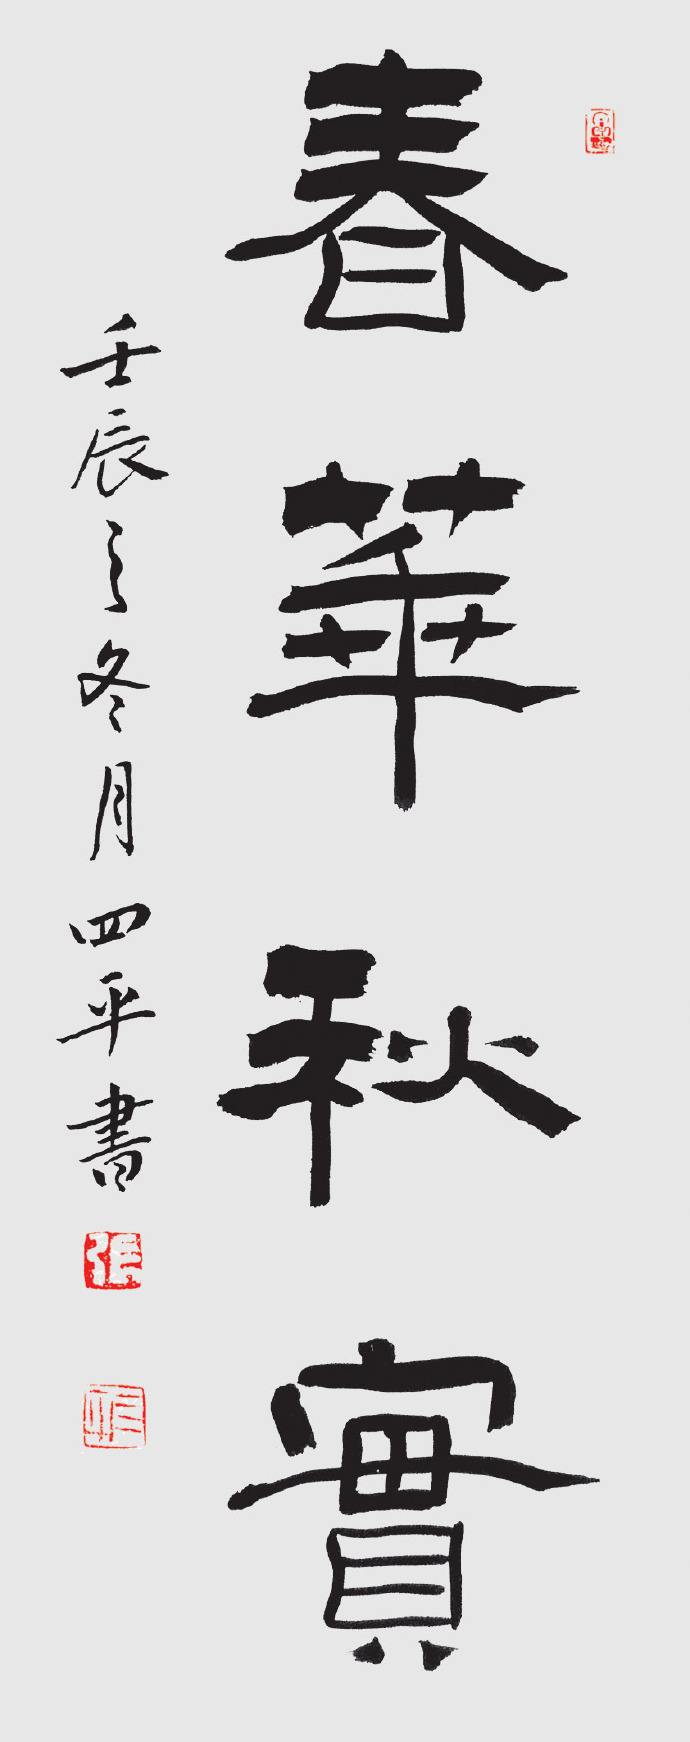 春華秋實
壬辰之冬月四平書
張